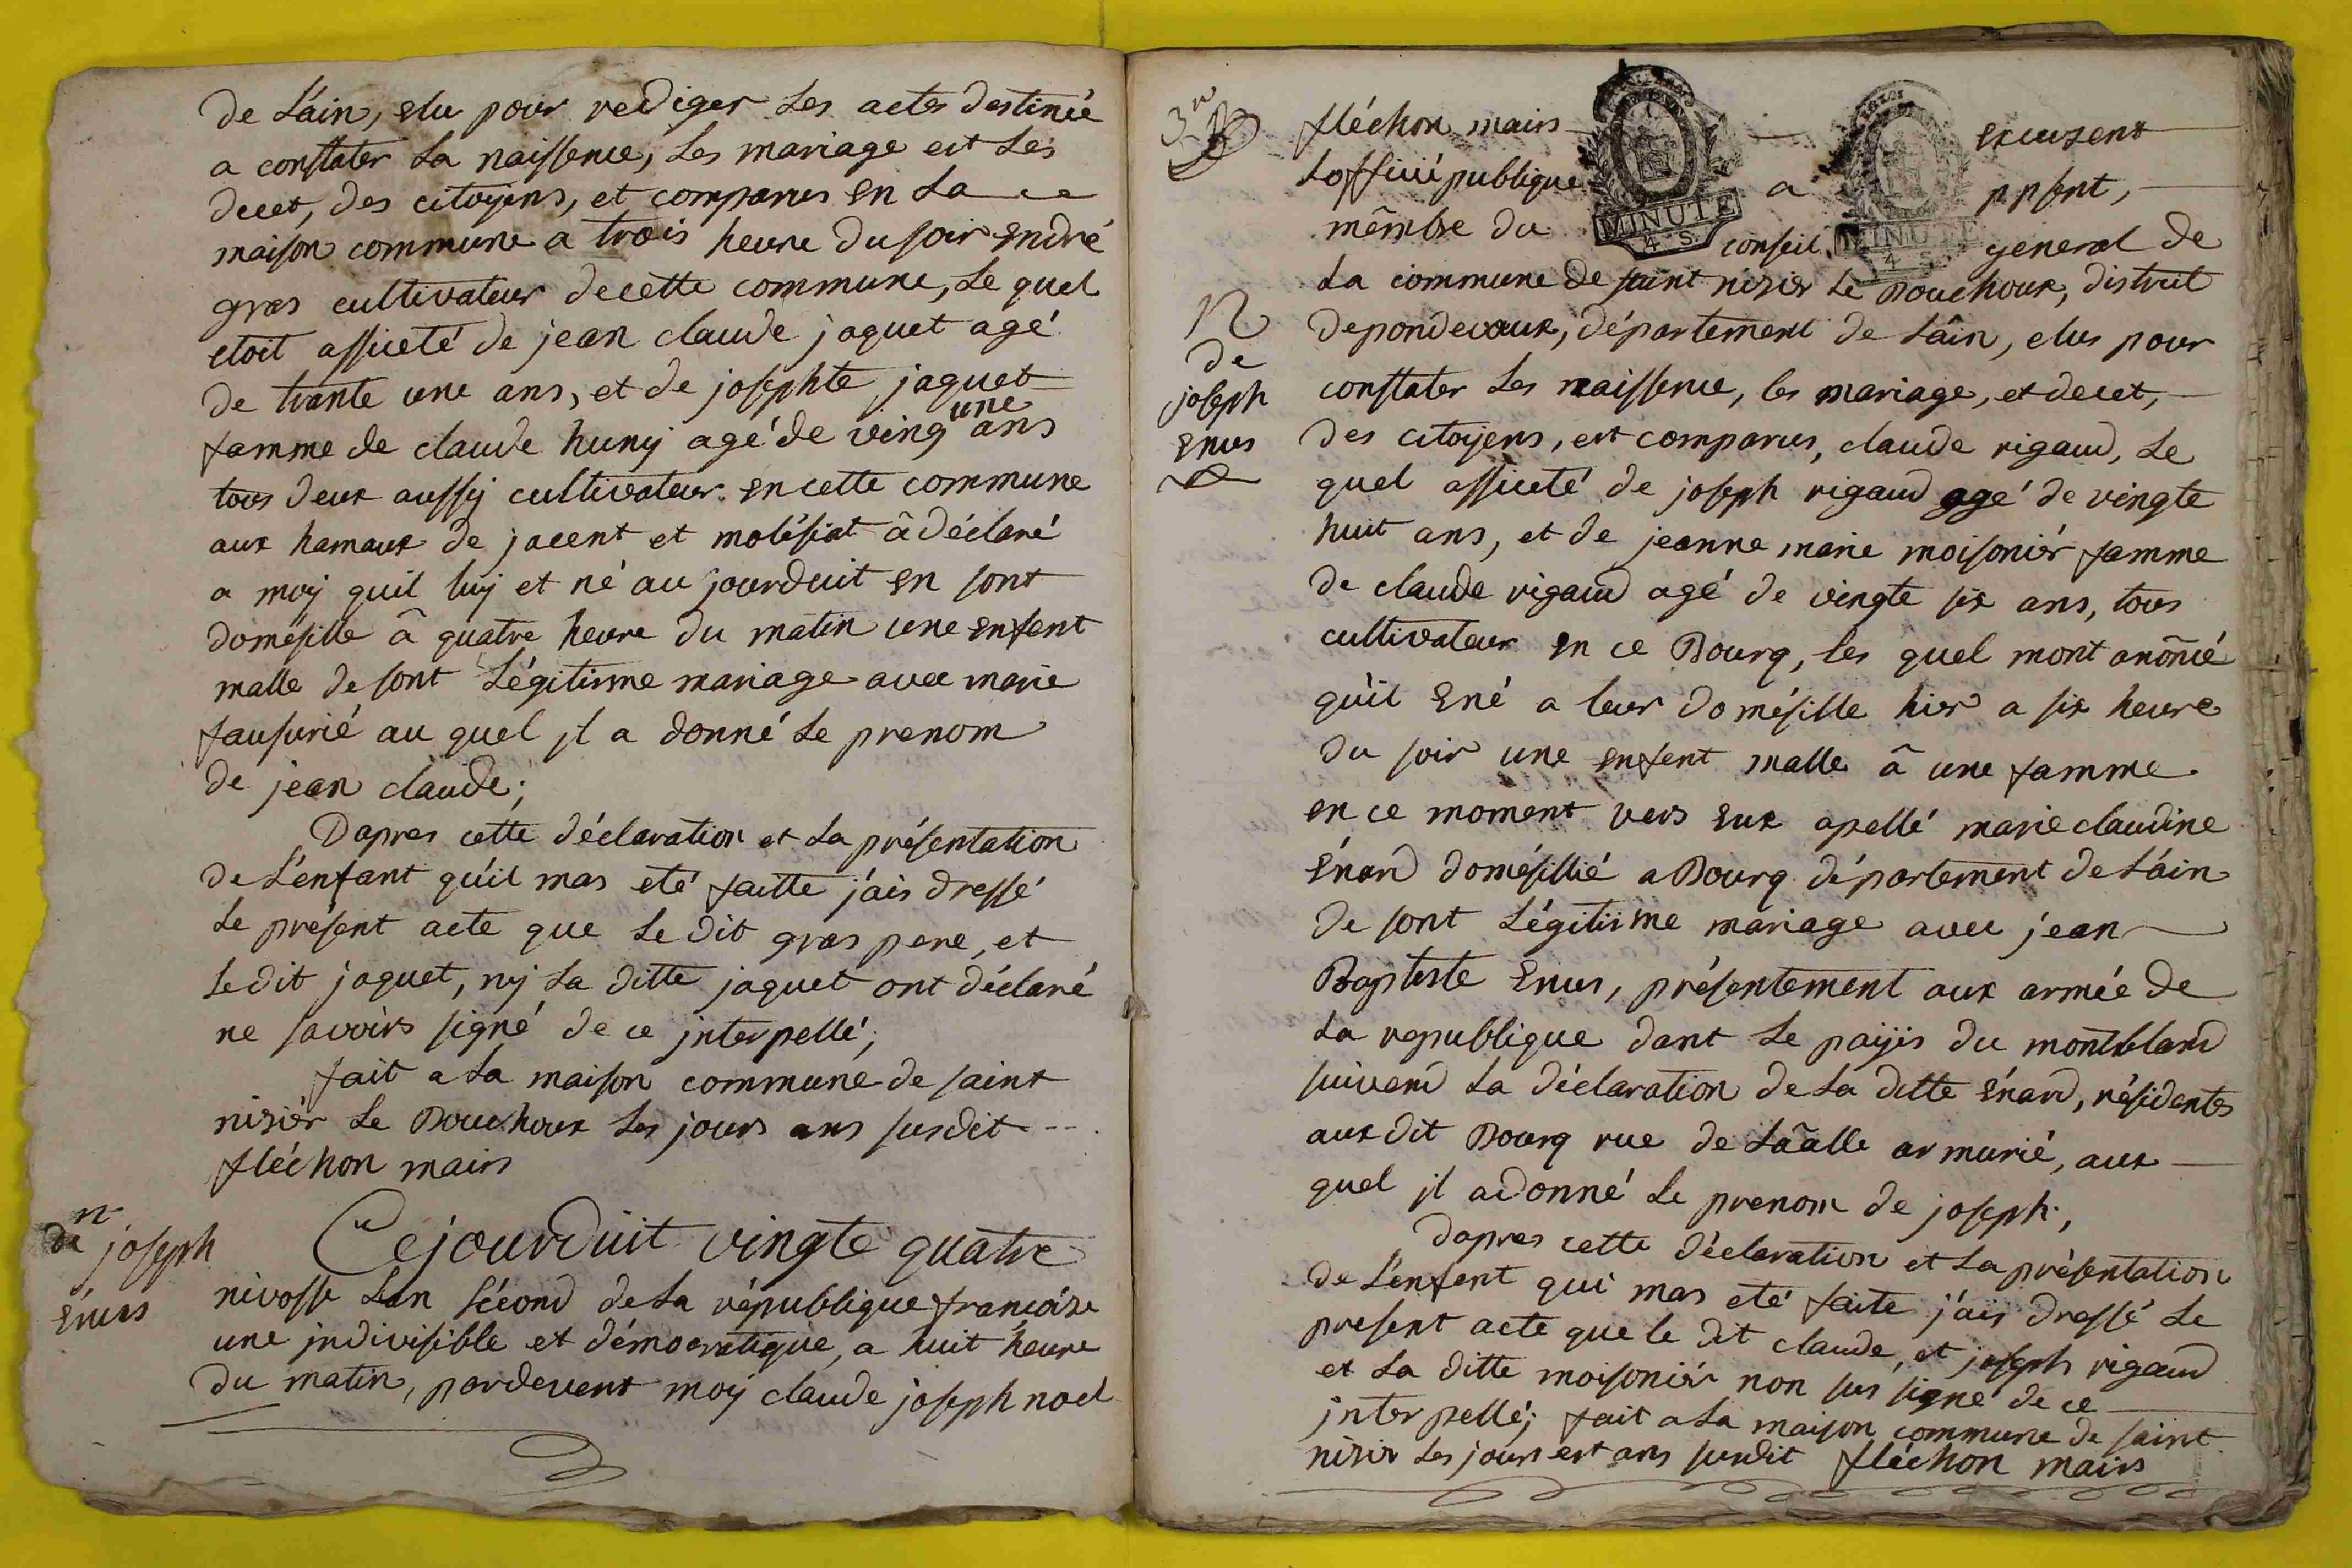 de L'ain, elu pour rediger Les actes destinée
a constater La naissence, Les mariage est Les
decet, des citoyens, et comparus en La
maison commune a trois heure du soir endré
gras cultivateur de cette commune, Le quel
etoit assiceté de jean claude jaquet agé
de trante une ans, et de josephte jaquet
famme de claude huny agé de ving une ans
tous deux aussy cultivateur en cette commune
aux hamaux de jacent et molésiat â déclaré
a moy quil luy et né au jourduit en sont
domésille â quatre heure du matin une enfent
malle de sont Légitime mariage avec marie
fausurié au quel jl a donné Le prenom
de jean claude;
Dapres cette déclaration et La présentation
de L'enfant qu'il mas eté faitte j'ais dressé
Le présent acte que Le dit gras pere, et
Le dit jaquet, ny La ditte jaquet ont déclaré
ne savoirs signé de ce jnterpellé;
fait a La maison commune de saint
nisiér Le Bouchoux Les jours ans susdit
fléchon mairs
n
de joseph
Enus
Cejourduit vingte quatre
nivosse L'an sécond de La république françoise
une jndivisible et démocratique, a huit heure
du matin, pardevent moy claude joseph noel
3
fléchon mairs excuzent
Lofficié publique a ppsent,
mêmbse du conseil general de
MINUTE
4. S.
MINUTE
4 S.
La commune de saint nisiér Le Bouchoux, distrit
depondevaux, département de L'ain, elus pour
n
de
joseph
Enus
constater Les naissence, les mariage, et decet,
des citoyens, est comparus, claude rigaud, Le
quel assiceté de joseph rigaud agé de vingte
huit ans, et de jeanne marie moisoniér famme
de claude rigaud agé de vingte six ans, tous
cultivateur en ce Bourg, les quel mont anõncé
qu'il Ené a leur domésille hier a six heure
du soir une enfent malle â une famme
en ce moment vers eux apellé marie claudine
Enard domésillié a Bourg département de L'ain
de sont Légitime mariage avec jean
Baptiste Enus, présentement aux armée de
La republique dant Le payis du montbland
suivend La déclaration de La ditte Enard, résidentes
aux dit Bourg rue de Laâlle armurié, aux
quel jl adonné Le prenom de joseph;
dapres cette déclaration et La présentation
de L'enfent qui mas eté faite j'ais dressé Le
present acte que le dit claude, et joseph rigaud
et La ditte moisoniér non sus signe de ce
jnterpellé; fait a La maison commune de saint
nisir Les jours est ans susdit fléchon mairs